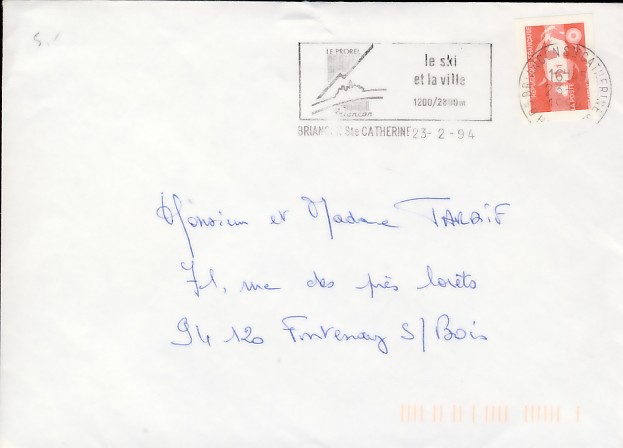 LE PROREL
le ski
et la ville
1200/2800m
Briançon
BRIANC Ste CATHERINE 23-2-94
REPUBLIQUE FRANÇAISE
LA POSTE
16
Monsieur et Madame TARDIF
71, rue des près lorêts
94 120 Fontenay S/Bois